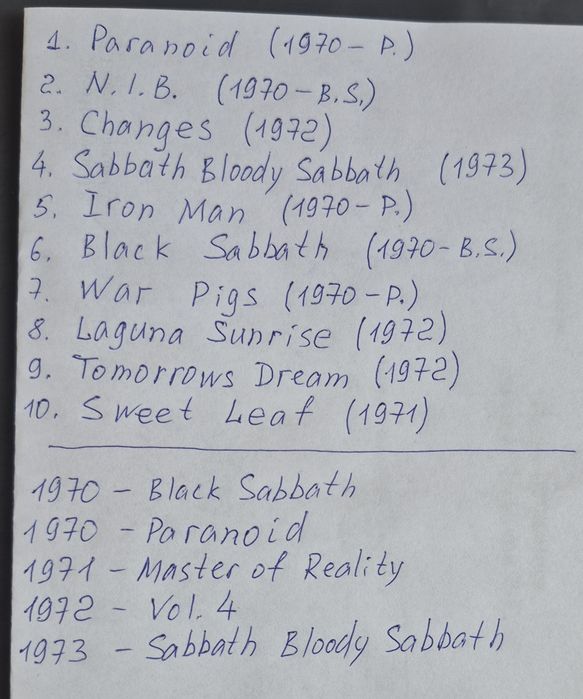 1. Paranoid (1970 - P.)
2. N.I.B. (1970 - B.S.)
3. Changes (1972)
4. Sabbath Bloody Sabbath (1973)
5. Iron Man (1970 - P.)
6. Black Sabbath (1970 - B.S.)
7. War Pigs (1970 - P.)
8. Laguna Sunrise (1972)
9. Tomorrows Dream (1972)
10. Sweet Leaf (1971)
1970 - Black Sabbath
1970 - Paranoid
1971 - Master of Reality
1972 - Vol. 4
1973 - Sabbath Bloody Sabbath